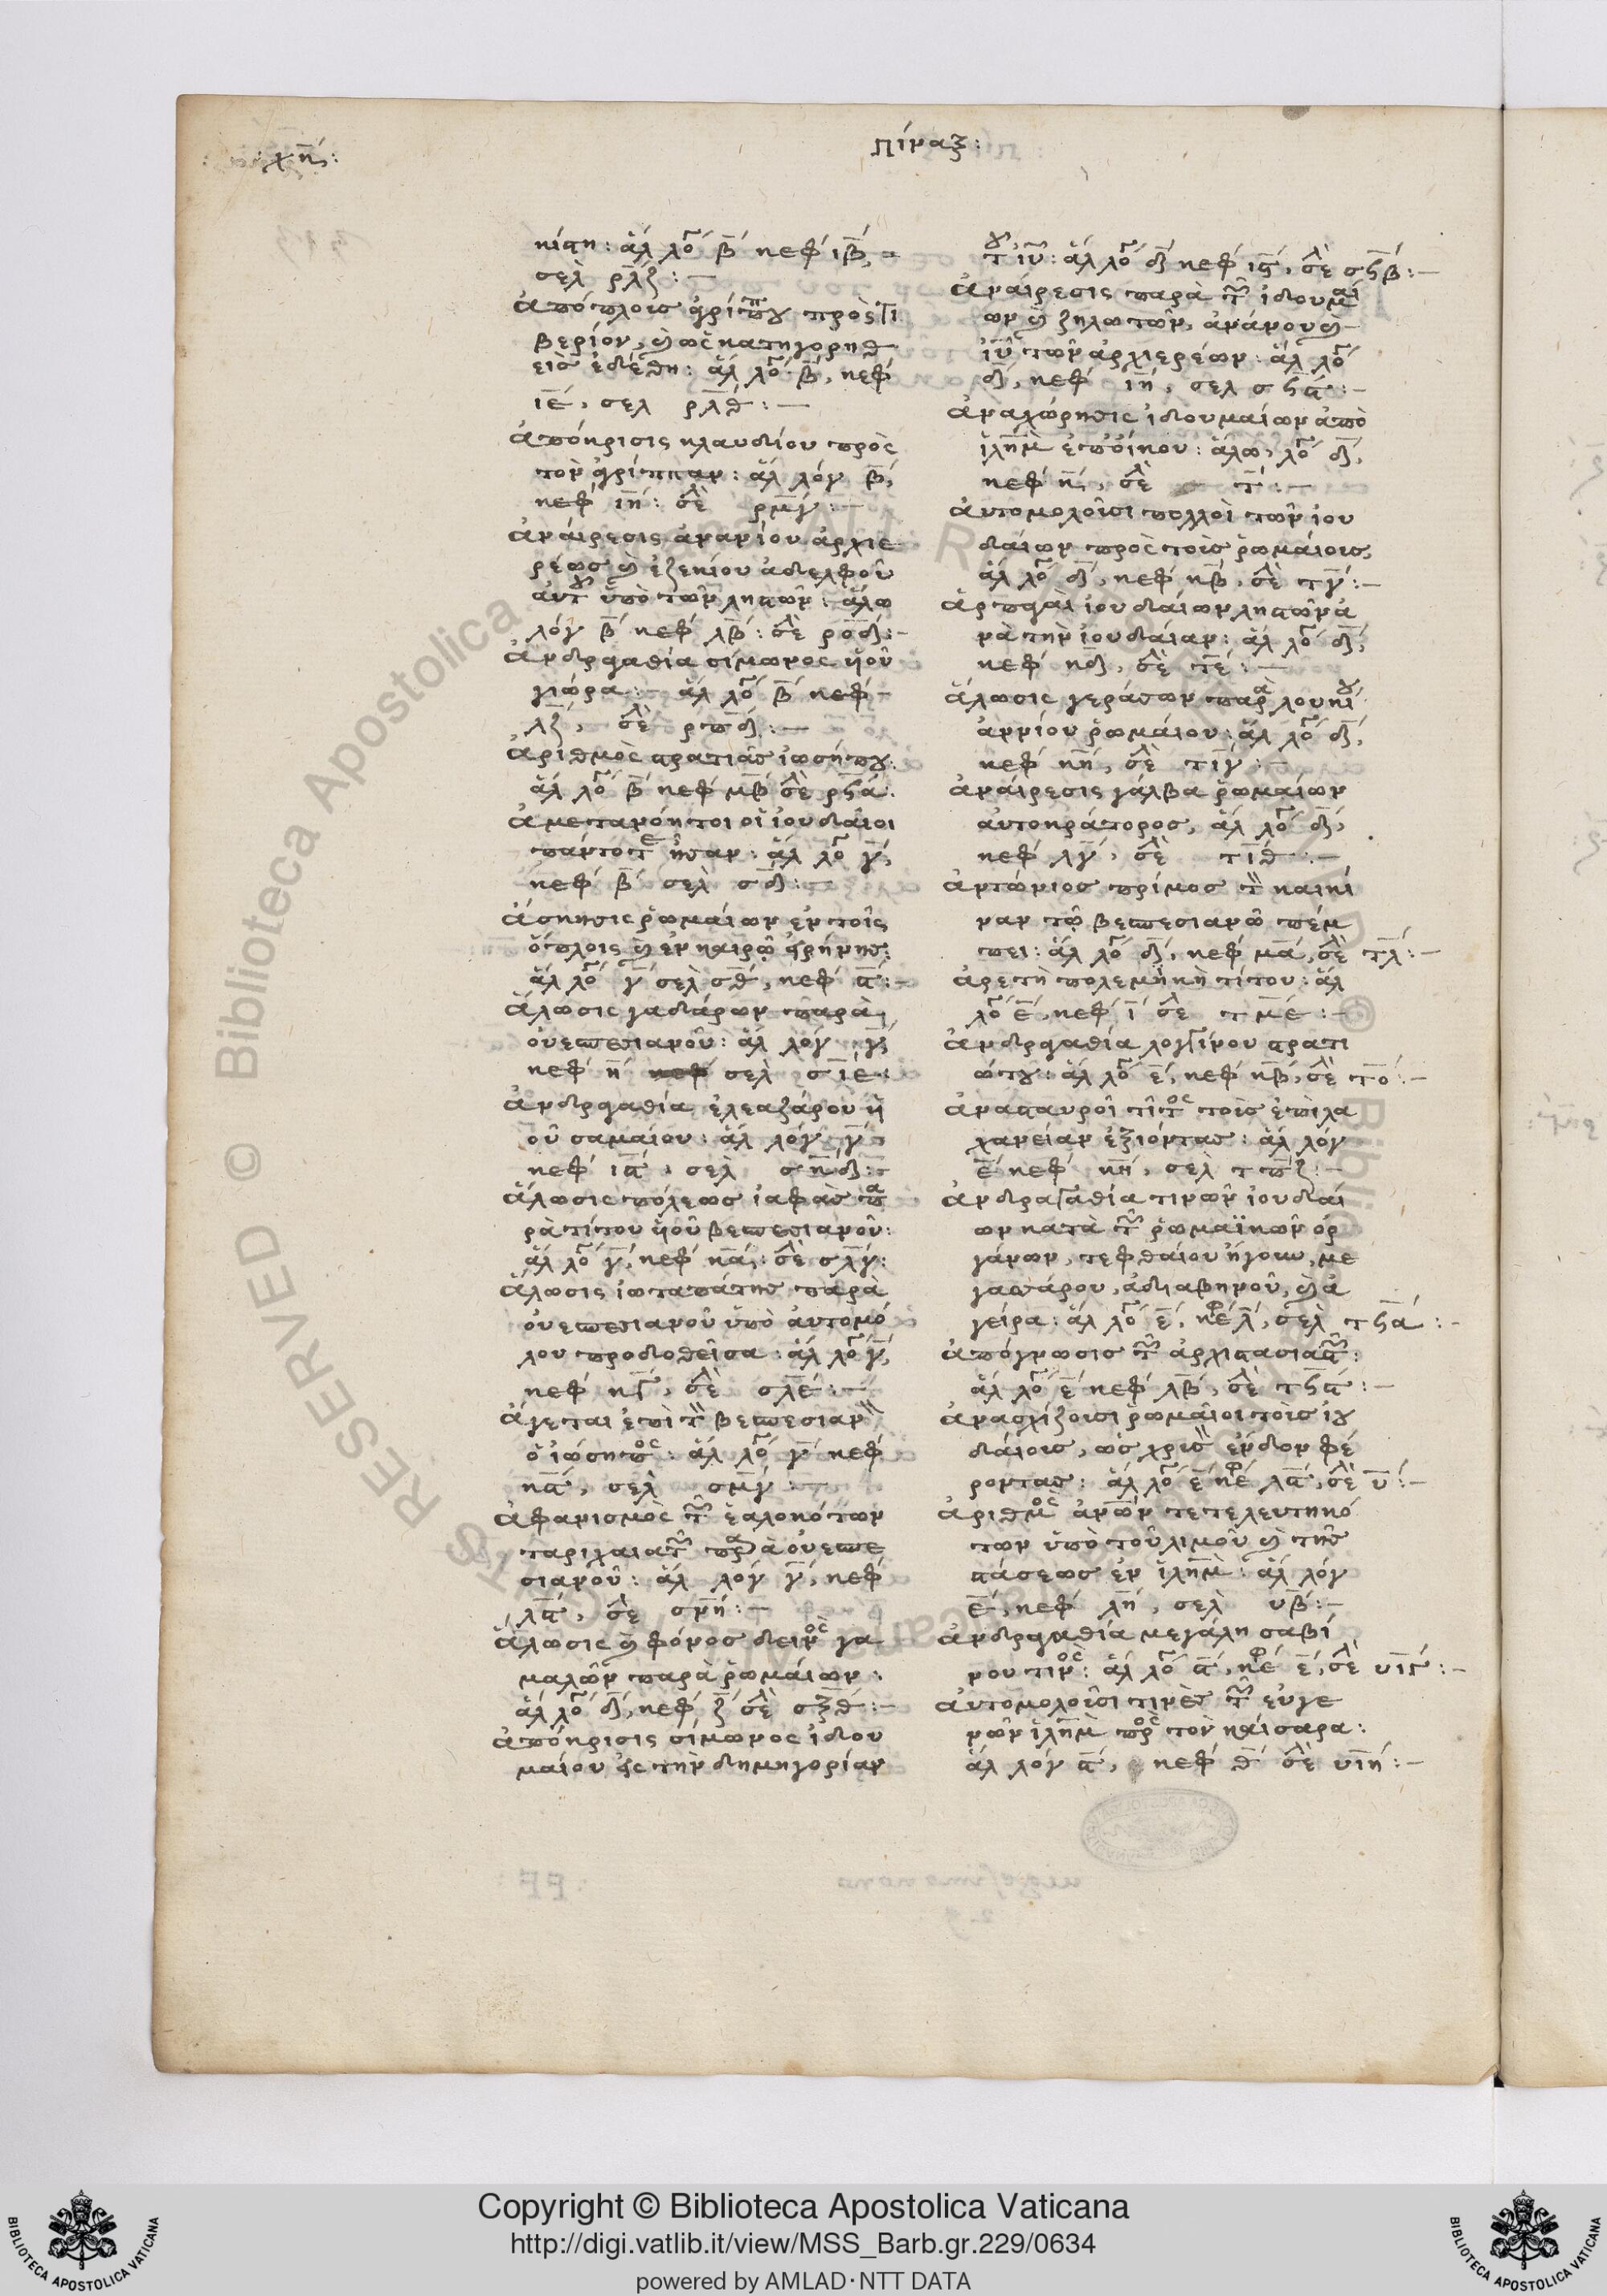 πίναξ:
κίτη: ἁλ λο β κεφ ιβ,
σελ ρλζ:—
ἀπόπλοις ἀγρίππου πρὸς τι
βεριόν, καὶ ὡς κατηγορηθ
εὶς ἐδέθη: ἁλ λο β, κεφ
ιε, σελ ρλθ:—
ἀπόκρισις κλαυδίου πρὸς
τὸν ἀγρίππαν: ἁλ λόγ β,
κεφ ιη: σελ ρμγ:—
ἀναίρεσις ἀνανίου ἀρχιε
ρέως καὶ ἐζεκίου ἀδελφοῦ
αὐτοῦ ὑπὸ τῶν ληστῶν: ἁλω
λόγ β κεφ λβ: σελ ροδ:—
ἀνδραγαθία σίμωνος ὑιοῦ
γιώρα: ἁλ λο β κεφ
λζ, σελ ρπδ:—
ἀριθμὸς στρατιᾶς ἰωσήπου:
ἁλ λο β κεφ μβ σελ ρϟα:
ἀμετανόητοι οἱ ἰουδαῖοι
πάντοτε ἦσαν: ἁλ λο γ,
κεφ β σελ σδ:
ἄσκησις ῥωμαίων ἐν τοῖς
ὅπλοις καὶ ἐν καιρῷ εἰρήνης:
ἁλ λο γ σελ σθ, κεφ α:—
ἅλωσις γαδάρων παρὰ
οὐεσπεσιανοῦ: ἁλ λόγ γ,
κεφ η σελ σιε:
ἀνδραγαθία ἐλεαζάρου ὑι
οῦ σαμαίου: ἁλ λόγ γ
κεφ ια, σελ σκδ:
ἅλωσις πόλεως ἰαφὰς πα
ρὰ τίτου ὑιοῦ βεσπεσιανοῦ:
ἁλ λο γ, κεφ κα, σελ σλγ:
ἅλωσις ἰωταπάτης παρὰ
οὐεσπεσιανοῦ ὑπὸ αὐτομό
λου προδοθεῖσα: ἁλ λο γ,
κεφ κγ, σελ σλε:—
ἄγεται ἐπὶ τὸν βεσπεσιανὸν
ὁ ἰώσηπος: ἁλ λο γ κεφ
κα, σελ σμγ:—
ἀφανισμὸς τῶν ἑαλοκότων
ταριχαιατῶν παρὰ οὐεσπε
σιανοῦ: ἁλ λόγ γ, κεφ
λα, σελ σνη:—
ἅλωσις καὶ φόνος δεινὸς γα
μαλῶν παρὰ ῥωμαίων:
ἁλ λο δ, κεφ ζ σελ σξθ:—
ἀπόκρισις σίμωνος ἰδου
μαίου εἰς τὴν δημηγορίαν
τοῦ ιυ: ἁλ λο δ κεφ ις, σελ σϟβ:—
ἀναίρεσις παρὰ τῶν ἰδουμαί
ων καὶ ζηλωτῶν, ἀνάνου καὶ
ιυ τῶν ἀρχιερέων: ἁλ λο
δ, κεφ ιη, σελ σϟα:—
ἀναχώρησις ἰδουμαίων ἀπὸ
ιλημ ἐπ' οἴκου: ἁλω, λο δ,
κεφ κ, σελ τ:—
αὐτομολοῦσι πολλοὶ τῶν ἰου
δαίων πρὸς τοὺς ῥωμαίους,
ἁλ λο δ, κεφ κβ, σελ τγ:—
ἁρπαγαὶ ἰουδαίων ληστῶν ἀ
νὰ τὴν ἰουδαίαν: ἁλ λο δ,
κεφ κδ, σελ τε:—
ἅλωσις γεράσων παρὰ λουκίου
ἀννίου ῥωμαίου: ἁλ λο δ,
κεφ κη, σελ τιγ:—
ἀναίρεσις γάλβα ῥωμαίων
αὐτοκράτορος, ἁλ λο δ,
κεφ λγ, σελ τιθ:—
ἀντώνιος πρίμος τὸν καικί
ναν τῷ βεσπεσιανῷ πέμ
πει: ἁλ λο δ, κεφ μα, σελ τλ:—
ἀρετὴ πολεμηκὴ τίτου: ἁλ
λο ε, κεφ ι σελ τμε:—
ἀνδραγαθία λογγίνου στρατι
ώτου: ἁλ λο ε, κεφ κβ, σελ το:—
ἀνασταυροῖ τίτος τοὺς ἐπὶ λα
χανείαν ἐξιόντας: ἁλ λόγ
ε κεφ κη, σελ τπζ:—
ἀνδραγαθία τινῶν ἰουδαί
ων κατὰ τῶν ῥωμαϊκῶν ὀρ
γάνων, τεφθαίου ἤγουν, με
γασάρου, ἀδιαβηνοῦ, καὶ ἀ
γείρα: ἁλ λο ε, κεφ λ, σελ τϟα:—
ἀπόγνωσις τῶν ἀρχιστασιαστῶν:
ἁλ λο ε κεφ λβ, σελ τϟα:—
ἀνασχίζουσι ῥωμαῖοι τοὺς ἰου
δαίους, ὡς χρυσὸν ἔνδον φέ
ροντας: ἁλ λο ε κεφ λα, σελ υ:—
ἀριθμὸς ἀνων τετελευτηκό
των ὑπὸ τοῦ λιμοῦ καὶ τῆς
στάσεως ἐν ιλημ: ἁλ λόγ
ε, κεφ λη, σελ υβ:—
ἀνδραγαθία μεγάλη σαβί
νου τινὸς: ἁλ λο ϛ, κεφ ε, σελ υιγ:—
αὐτομολοῦσι τινὲς τῶν εὐγε
νῶν ιλημ πρὸς τὸν καίσαρα:
ἁλ λόγ ϛ, κεφ θ σελ υιη:—
Copyright © Biblioteca Apostolica Vaticana
http://digi.vatlib.it/view/MSS_Barb.gr.229/0634
powered by AMLAD·NTT DATA